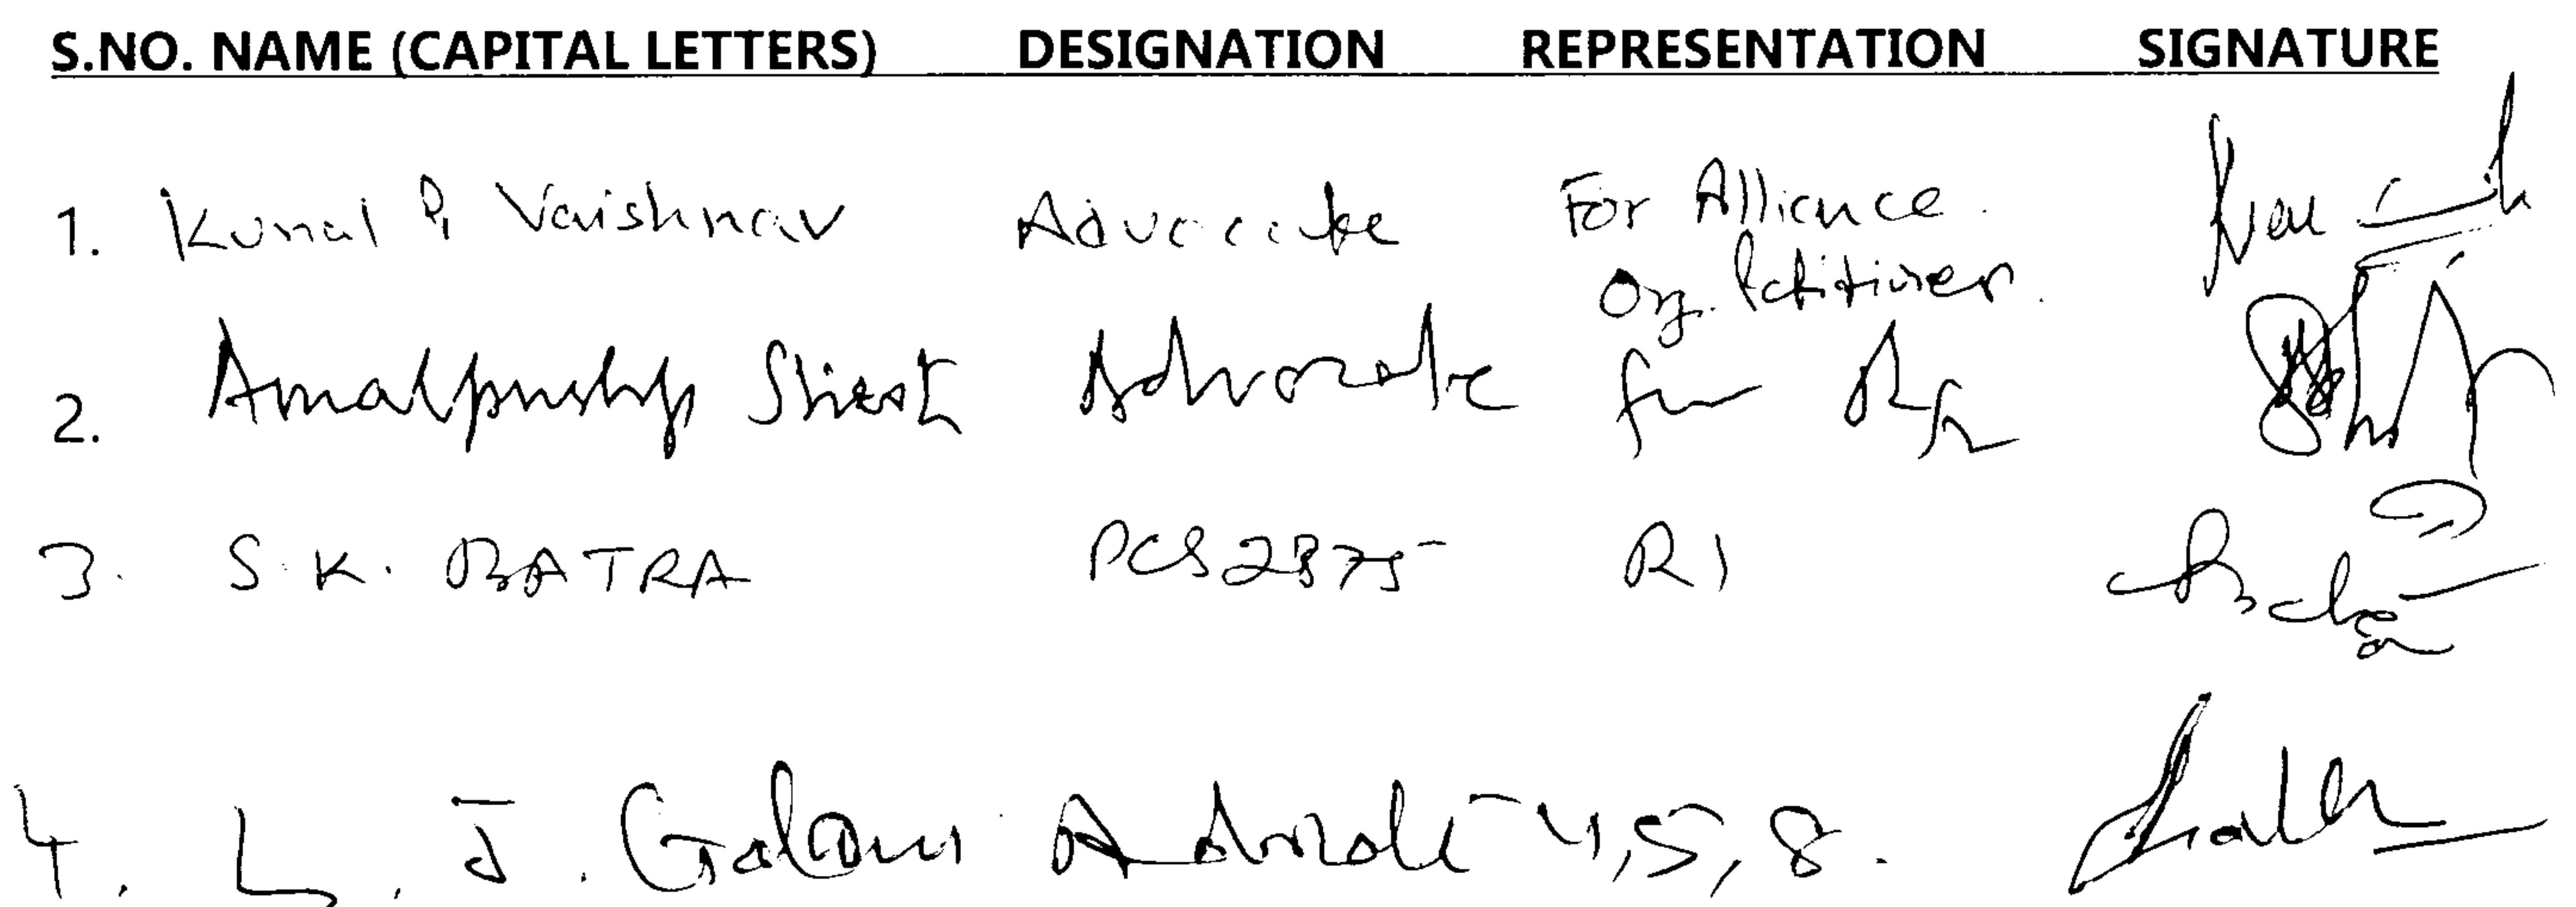 S.NO. NAME (CAPITAL LETTERS) DESIGNATION REPRESENTATION SIGNATURE
1. Kunal P Vaishnav Advocate For Alliance
Org. Petitioner.
2. Advocate for
3. S. K. BATRA PCS 2875 R1
4. L. J. Advocate 4, 5, 8.